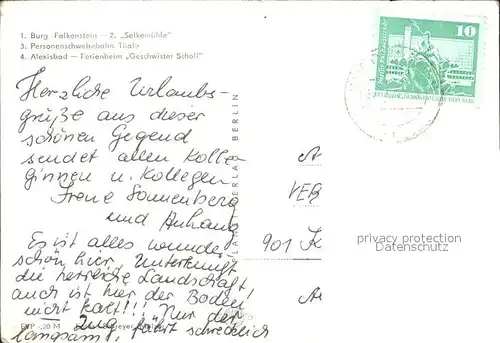 1. Burg Falkenstein — 2. „Selkemühle"
3. Personenschwebebahn Thale
4. Alexisbad — Ferienheim „Geschwister Scholl"
10
Herzliche Urlaubs-
grüße aus dieser
schönen Gegend
sendet allen Kolle-
ginnen u. Kollegen
Irene Sonnenberg
und Anhang
Es ist alles wunder-
schön hier, Unterkunft,
die herrliche Landschaft,
auch ist hier der Boden
nicht kalt!! Nur der
"Zug" fährt schrecklich
langsam!
VERLAG BERLIN
VEB
901 K
privacy protection
Datenschutz
EVP -,20 M